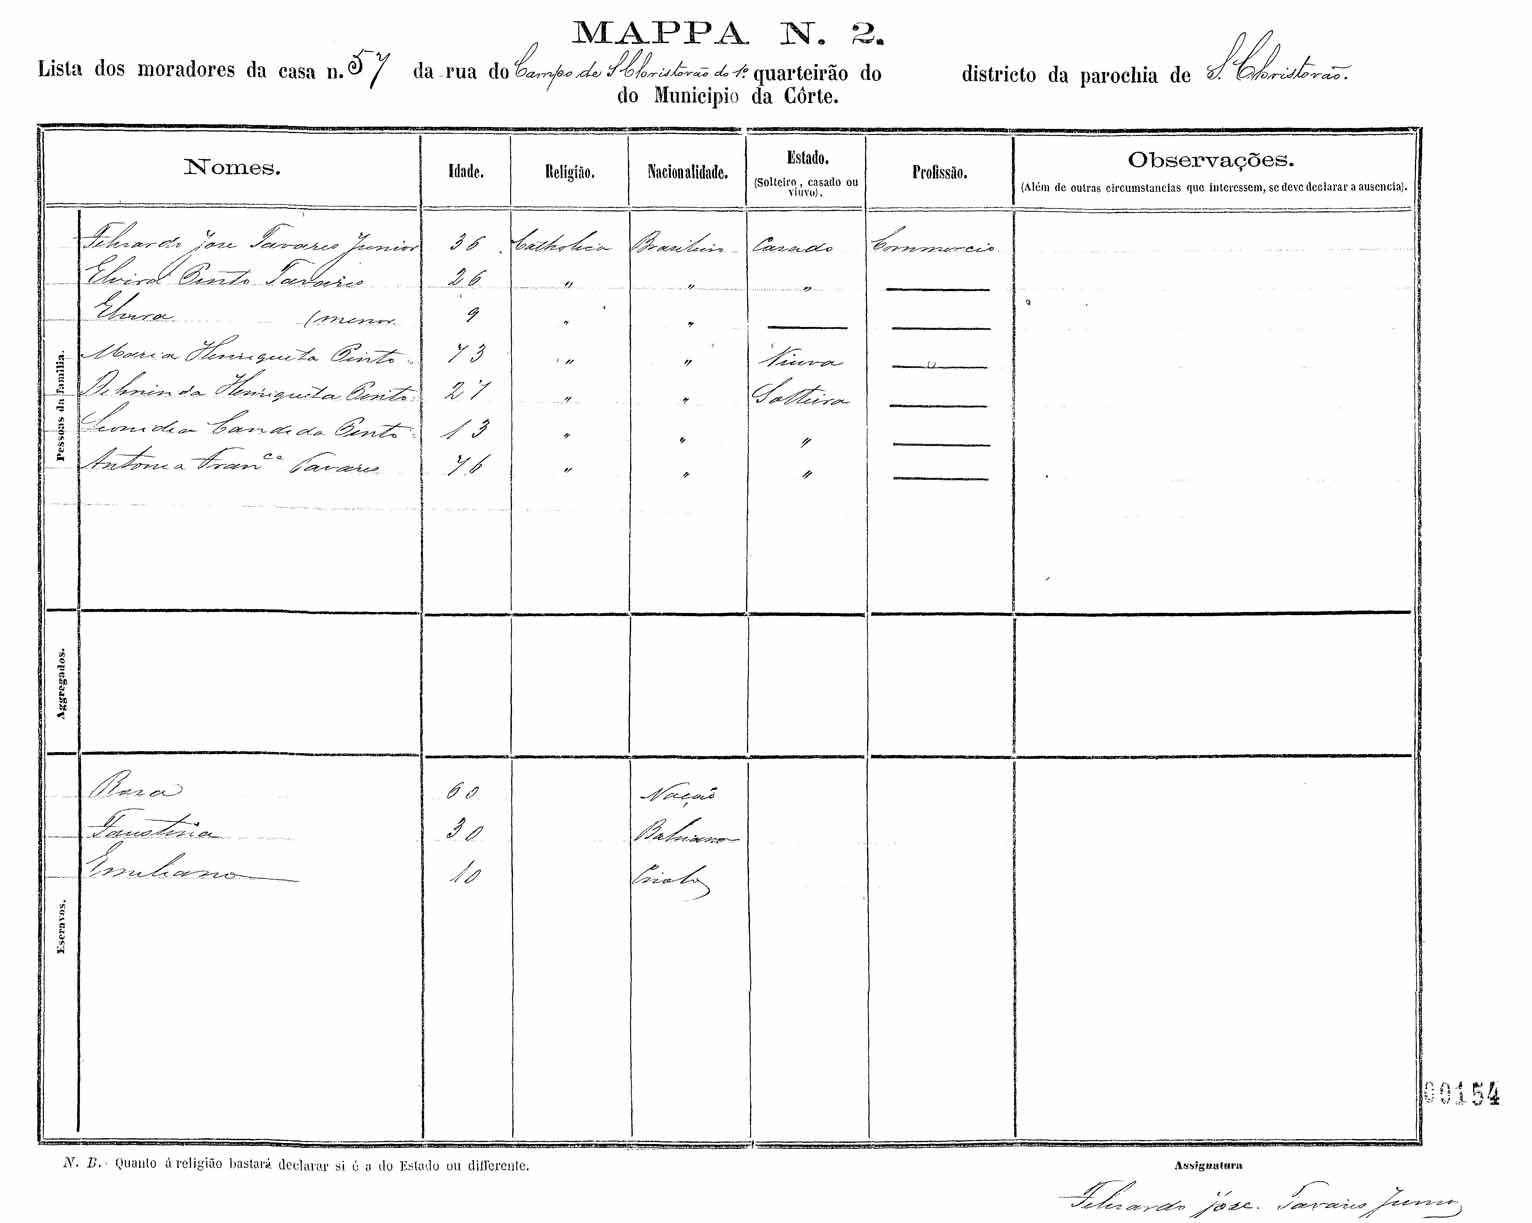 MAPPA N. 2.
Lista dos moradores da casa n. 57 da rua do Campo de S Christovão do 1º quarteirão do districto da parochia de S. Christovão.
do Municipio da Côrte.
Nomes. Idade. Religião. Nacionalidade. Estado. (Solteiro, casado ou viuvo). Profissão. Observações. (Além de outras circumstancias que interessem, se deve declarar a ausencia).
Pessoas da familia.
José Tavares Junior 36 Catholica Brasileiro Casado Commercio
Elvira Pinto Tavares 26 " " "
Elvira (menor 9 " "
Maria Henriqueta Pinto 73 " " Viuva
Henriqueta Pinto 27 " " Solteira
Candida Pinto 13 " " "
Antonia Franca Tavares 76 " " "
Aggregados.
Escravos.
Rosa 60 Nação
Faustina 30 Bahiana
Emiliano 10 Criolo
00154
N. B. Quanto á religião bastará declarar si é a do Estado ou differente.
Assignatura
José Tavares Junior